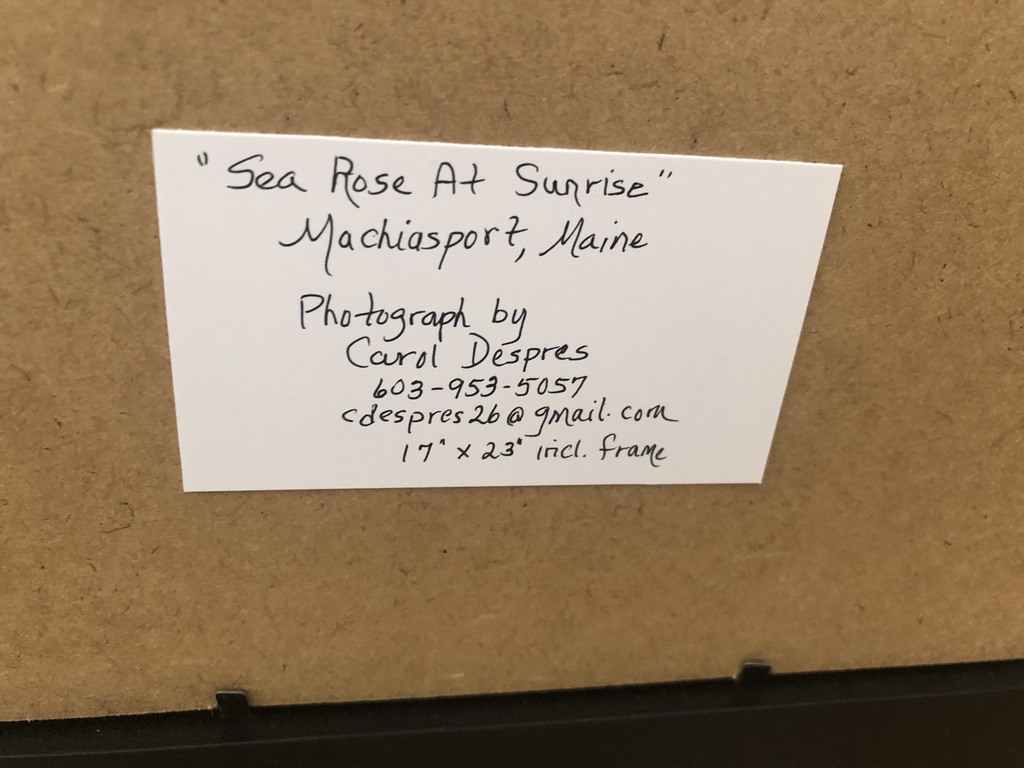 "Sea Rose At Sunrise"
Machiasport, Maine
Photograph by
Carol Despres
603-953-5057
cdespres26@gmail.com
17" x 23" incl. frame